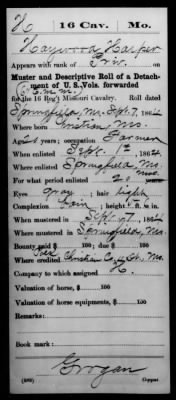 H | 16 Cav. | Mo.
Haywood Harper
Appears with rank of Priv. on
Muster and Descriptive Roll of a Detach-
ment of U. S. Vols. forwarded
for the 16 Reg't Missouri Cavalry. Roll dated
Springfield, Mo. Sept. 7, 1864
Where born Christian Co. Mo.
Age years; occupation Farmer
When enlisted Sept. 1st, 1864
Where enlisted Springfield, Mo.
For what period enlisted 20 mos.
Eyes gray; hair light
Complexion fair; height ft. in.
When mustered in Sept. 7, 1864
Where mustered in Springfield, Mo.
Bounty paid $ 100; due $ 100
Where credited Christian Co. Mo.
Company to which assigned H.
Valuation of horse, $ 100
Valuation of horse equipments, $ 100
Remarks:
Book mark:
Grogan
Copyist.